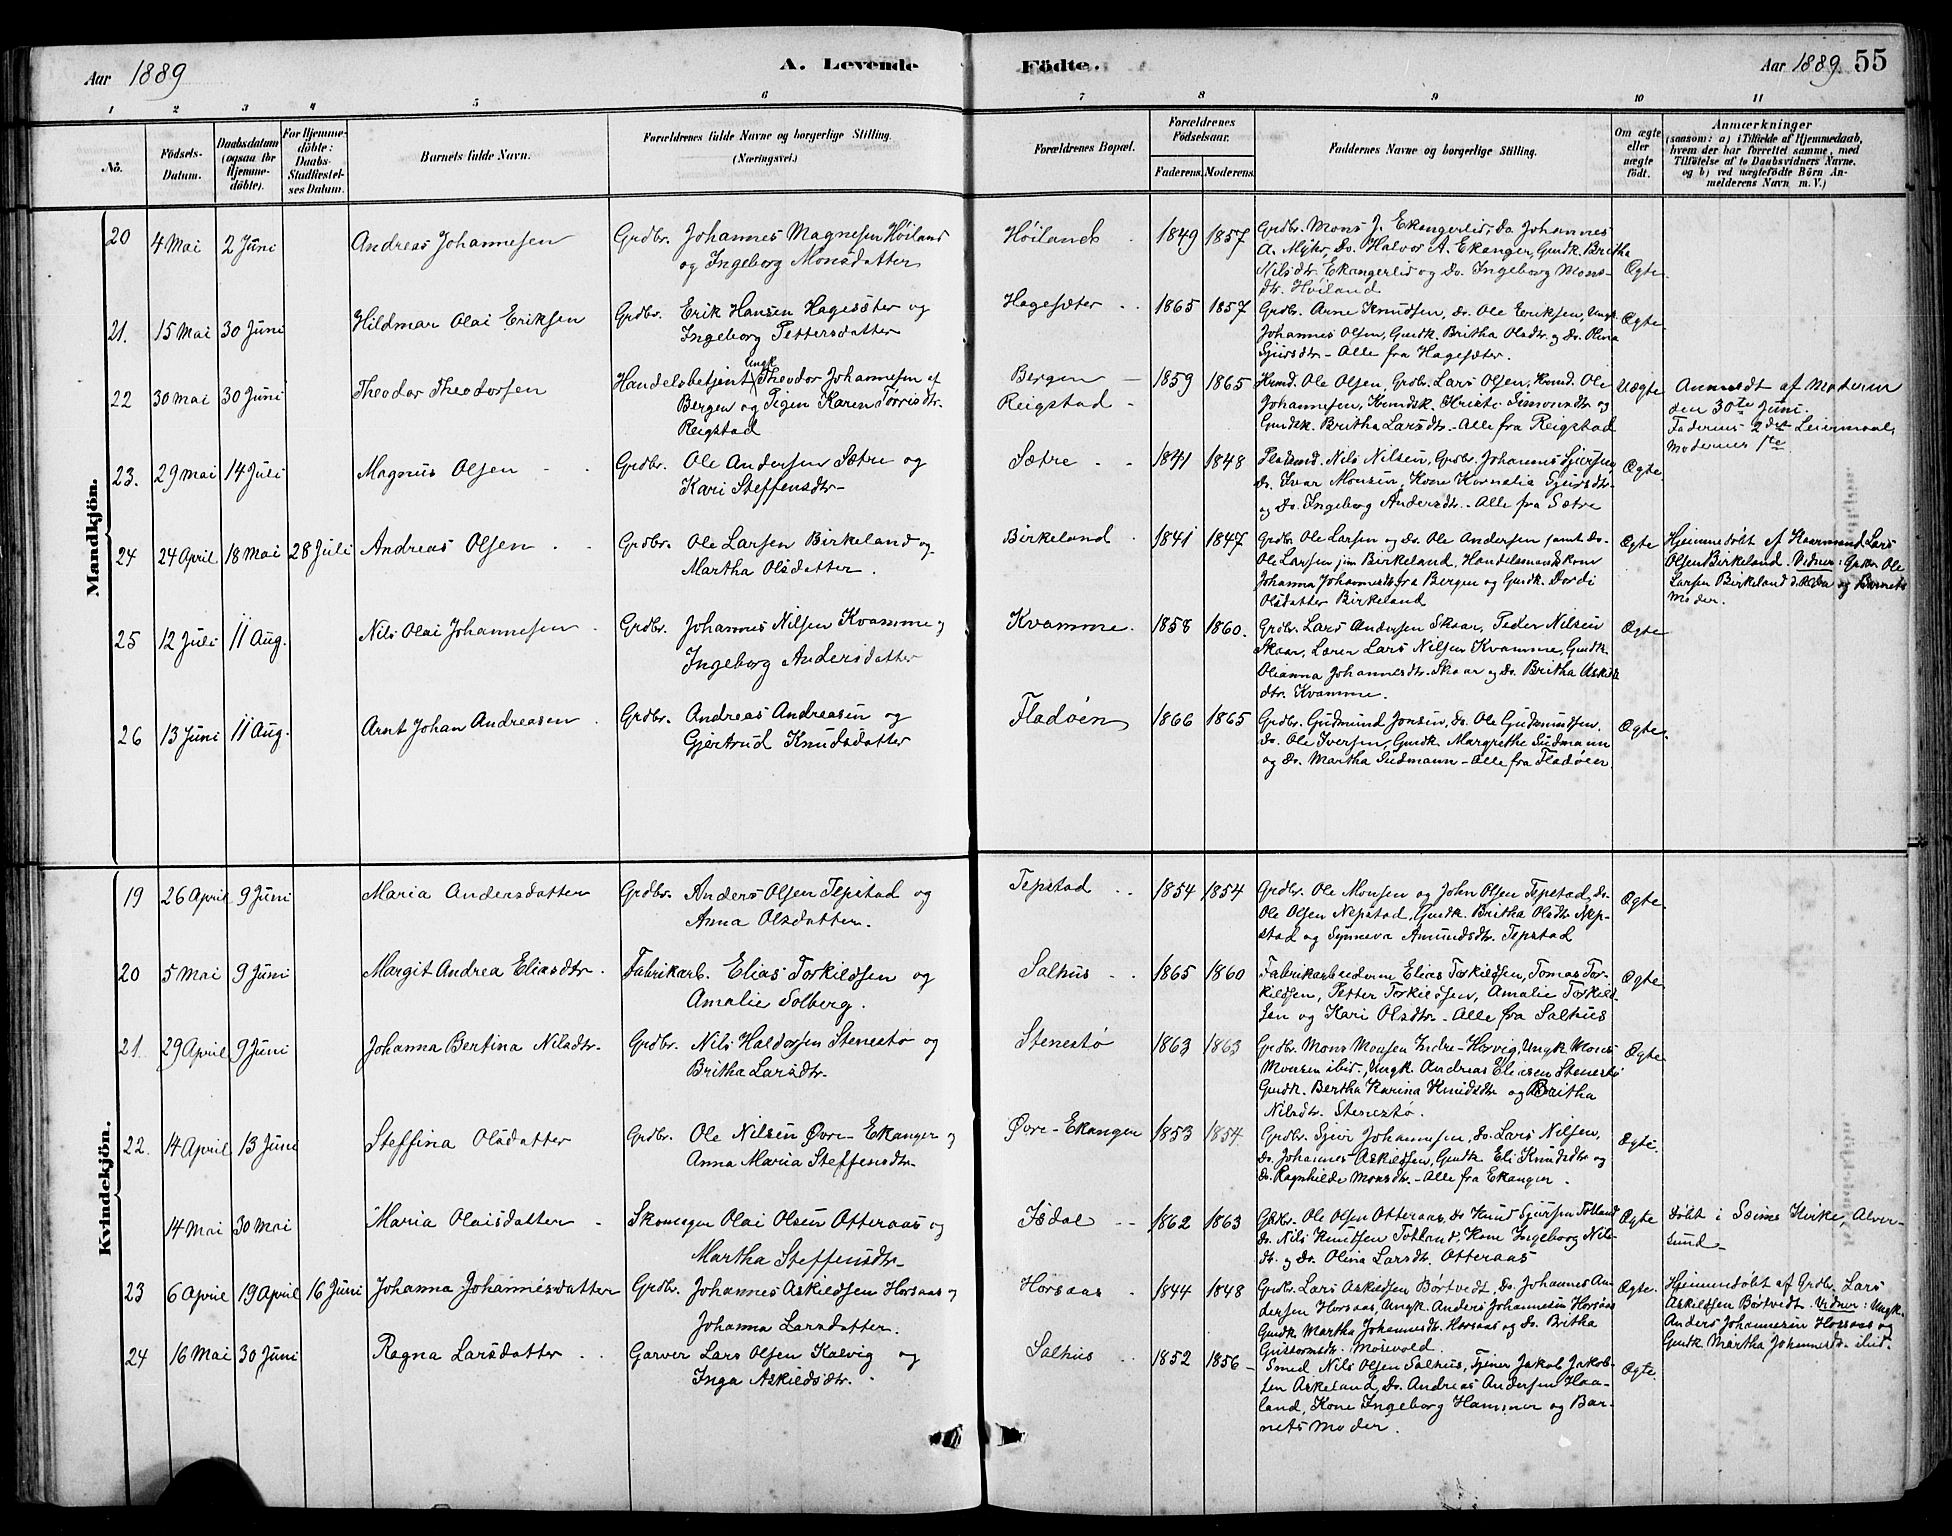 Aar 1889
A. Levende Födte.
Aar 1889. 55
1 2 3 4 5 6 7 8 9 10 11
No.
Födsels-
Datum.
Daabsdatum
(ogsaa for
Hjemme-
döbte).
For Hjemme-
döbte:
Daabs-
Stadfæstel-
ses Datum.
Barnets fulde Navn.
Forældrenes fulde Navne og borgerlige Stilling.
(Næringsvei.)
Forældrenes Bopæl.
Forældrenes
Födselsaar.
Faderens. Moderens.
Faddernes Navne og borgerlige Stilling.
Om ægte
eller
uægte
födt.
Anmærkninger
(saasom: a) i Tilfælde af Hjemmedaab,
hvem der har forrettet samme, med
Tilföielse af to Daabsvidners Navne.
og b) ved uægtefödte Börn An-
melderens Navn m. V.)
Mandkjön.
20 4 Mai 2 Juni Andreas Johannesen
Grdbr. Johannes Magnesen Höiland
og Ingeborg Monsdatter
Höiland 1849 1857
Grdbr. Mons J. Ekangerlid, Do Johannes
A. Myhr, Do. Halvor A. Ekanger, Gmdk. Britha
Nilsdtr. Ekangerlid og Do. Ingeborg Mons-
dtr. Höiland
Ægte.
21. 15 Mai 30 Juni Hildmar Olai Eriksen
Grdbr. Erik Hansen Hagesæter og
Ingeborg Pettersdatter
Hagesæter 1865 1857
Grdbr. Arne Knudsen, Do. Ole Eriksen, Ungk.
Johannes Olsen, Gmdk. Britha Olsdtr. og Do. Olina
Sjursdtr. - Alle fra Hagesæter.
Ægte.
22 30 Mai 30 Juni Theodor Theodorsen
Handelsbetjent Ungk. Theodor Johannesen af
Bergen og Pigen Karen Torrisdtr.
Reigstad
Bergen
Reigstad
1859 1865
Husmd. Ole Olsen, Grdbr. Lars Olsen, Husmd. Ole
Johannesen, Husmdsk. Kristi Simonsdtr og
Gmdk. Britha Larsdtr. - Alle fra Reigstad
Uægte
Anmeldt af Moderen
den 30te Juni.
Faderens 2det Leiermaal,
Moderens 1te
23. 29 Mai 14 Juli Magnus Olsen
Grdbr. Ole Andersen Sætre og
Kari Steffensdtr.
Sætre 1841 1848
Nils Nilsen, Grdbr. Johannes Sjursen,
Do. Ivar Monsen, Kone Kornelia Sjursdtr.
og Do. Ingeborg Andersdtr. - Alle fra Sætre
Ægte.
24 24 April 18 Mai 28 Juli Andreas Olsen
Grdbr. Ole Larsen Birkeland og
Martha Olsdatter.
Birkeland 1841 1847
Grdbr Ole Larsen og Do. Ole Andersen samt Do.
Ole Larsen jun Birkeland, Handelsmandskone
Johanna Johannesdtr. fra Bergen og Gmdk. Dordi
Olsdatter Birkeland
Ægte
Hjemmedöbt af Kaarmand Lars
Olsen Birkeland. Vidner: Grdbr. Ole
Larsen Birkeland og Barnets
Moder.
25 12 Juli 11 Aug. Nils Olai Johannesen
Grdbr. Johannes Nilsen Kvamme og
Ingeborg Andersdatter
Kvamme. 1858 1860.
Grdbr. Lars Andersen Skaar, Peder Nilsen
Skaar, Lærer Lars Nilsen Kvamme, Gmdk.
Olianna Johannesdtr. Skaar og Do. Britha Askilds
dtr. Kvamme.
Ægte
26 13 Juni 11 Aug. Arnt Johan Andreasen
Grdbr. Andreas Andreasen og
Gjertrud Knudsdatter
Fladöen 1866 1865
Grdbr. Gudmund Jonsen, Do. Ole Gudmundsen.
Do. Ole Iversen, Gmdk. Margrethe Sudmann
og Do. Martha Sudmann - Alle fra Fladöen
Ægte.
Kvindekjön.
19 26 April 9 Juni Maria Andersdatter
Grdbr. Anders Olsen Tepstad og
Anna Olsdatter.
Tepstad 1854 1854
Grdbr. Ole Monsen og John Olsen Tepstad, Do.
Ole Olsen Nepstad, Gmdk. Britha Olsdtr. Nep-
stad og Synneva Amundsdtr. Tepstad
Ægte.
20 5 Mai 9 Juni Margit Andrea Eliasdtr.
Fabrikarb. Elias Torkildsen og
Amalie Solberg.
Salhus 1865 1860
Fabrikarbeiderne Elias Torkildsen, Tomas Tor-
kildsen, Petter Torkildsen, Amalie Torkild-
sen og Kari Olsdtr. - Alle fra Salhus
Ægte
21. 29 April 9 Juni Johanna Bertina Nilsdtr.
Grdbr. Nils Haldorsen Stenestö og
Britha Larsdtr.
Stenestö 1863 1863
Grdbr. Mons Monsen Indre-Horvig, Ungk Mons
Monsen ibid., Ungk. Andreas Eliasen Stenestö
Gmdk. Bertha Karina Knudsdtr og Britha
Nilsdtr. Stenestö.
Ægte
22. 14 April 13 Juni Steffina Olsdatter
Grdbr. Ole Nilsen Övre-Ekanger og
Anna Maria Steffensdtr.
Övre-Ekanger 1853 1854.
Grdbr. Sjur Johannesen, Do. Lars Nilsen,
Do. Johannes Askildsen, Gmdk Eli Knudsdtr og
Do. Ragnhilde Monsdtr. - Alle fra Ekanger.
Ægte.
14 Mai 30 Mai Maria Olaisdatter
Skomager Olai Olsen Otteraas og
Martha Steffensdtr.
Isdal 1862 1863
Grdbr. Ole Olsen Otteraas, Do Knud Sjursen Totland
Do. Nils Knudsen Totland, Kone Ingeborg Nils-
dtr. og Do. Olina Larsdtr. Otteraas
Ægte
döbt i Seims Kirke, Alver-
sund
23 6 April 19 April 16 Juni Johanna Johannesdatter
Grdbr. Johannes Askildsen Horsaas og
Johanna Larsdatter.
Horsaas 1844 1848
Grdbr. Lars Askildsen Börtvedt, Do. Johannes An-
dersen Horsaas, Ungk. Anders Johannesen Horsaas
Gmdk Martha Johannesdtr. Horsaas og Do. Britha
Guttormsdtr. Mosevold.
Ægte.
Hjemmedöbt af Grdbr. Lars
Askildsen Börtvedt. Vidner: Ungk.
Anders Johannesen Horsaas og
Gmdk. Martha Johannesdtr ibid.
24 16 Mai 30 Juni Ragna Larsdatter
Garver Lars Olsen Kalvig og
Inga Askildsdtr.
Salhus 1852 1856
Smed Nils Olsen Salhus, Tjener Jakob Jakob-
sen Askeland, Do. Andreas Andersen Haa-
land, Kone Ingeborg Hammer og Bar-
nets Moder.
Ægte.